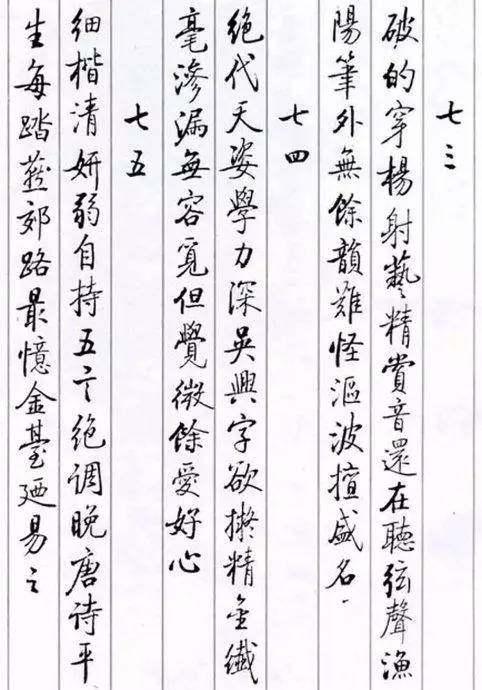 七三
破的穿楊射藝精賞音還在聽弦聲漁
陽筆外無餘韻難怪漚波擅盛名
七四
絕代天姿學力深吳興字欲擬精金纖
毫滲漏無容覓但覺微餘愛好心
七五
細楷清妍弱自持五言絕調晚唐诗平
生每踏薊郊路最憶金臺廼易之